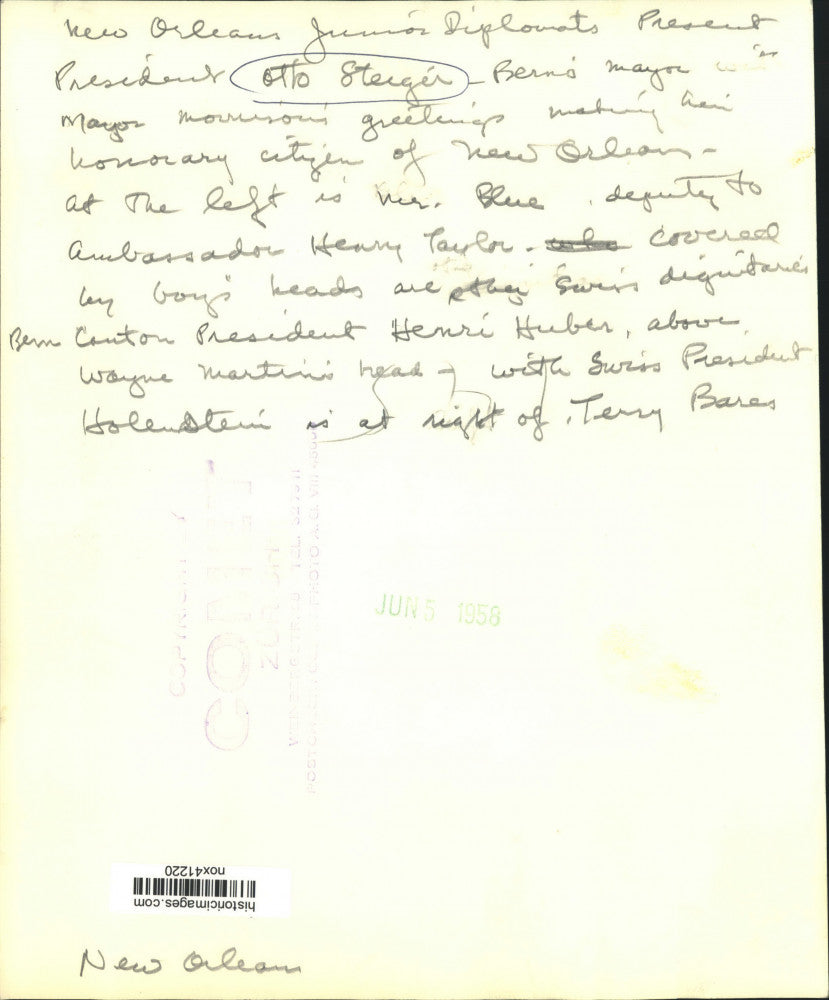 New Orleans Junior Diplomats Present
President Otto Steiger - Bern's mayor
Mayor Morrison's greetings making him
honorary citizen of New Orleans -
at The left is Mr. Blue, deputy to
Ambassador Henry Taylor. who covered
by boys heads are other Swiss dignitaries
Bern Canton President Henri Huber, above
Wayne Martin's head - with Swiss President
Holenstein is at right of Terry Bares
COPYRIGHT BY
COMET
ZÜRICH
JUN 5 1958
nox41220
historicimages.com
New Orleans